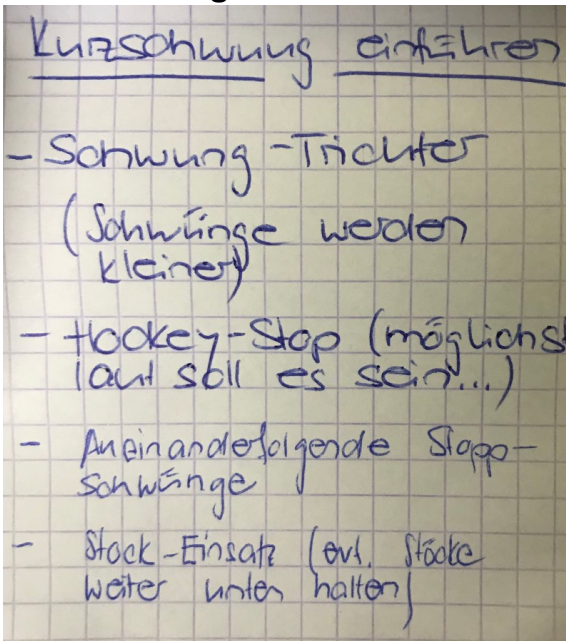 Kurzschwung einführen
- Schwung-Trichter
(Schwünge werden
kleiner)
- Hockey-Stop (möglichst
laut soll es sein...)
- Aneinanderfolgende Stopp-
schwünge
- Stock-Einsatz (evt. Stöcke
weiter unten halten)